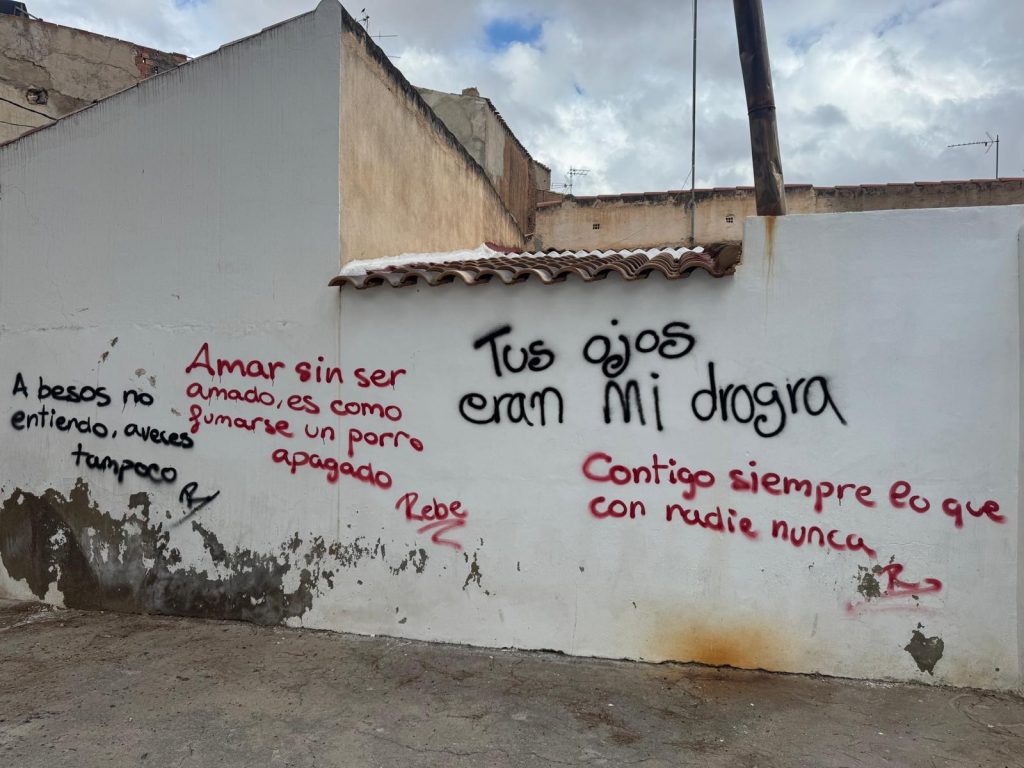 A besos no
entiendo, aveces
tampoco
R
Amar sin ser
amado, es como
fumarse un porro
apagado
Rebe
Tus ojos
eran Mi drogra
Contigo siempre lo que
con nadie nunca
R